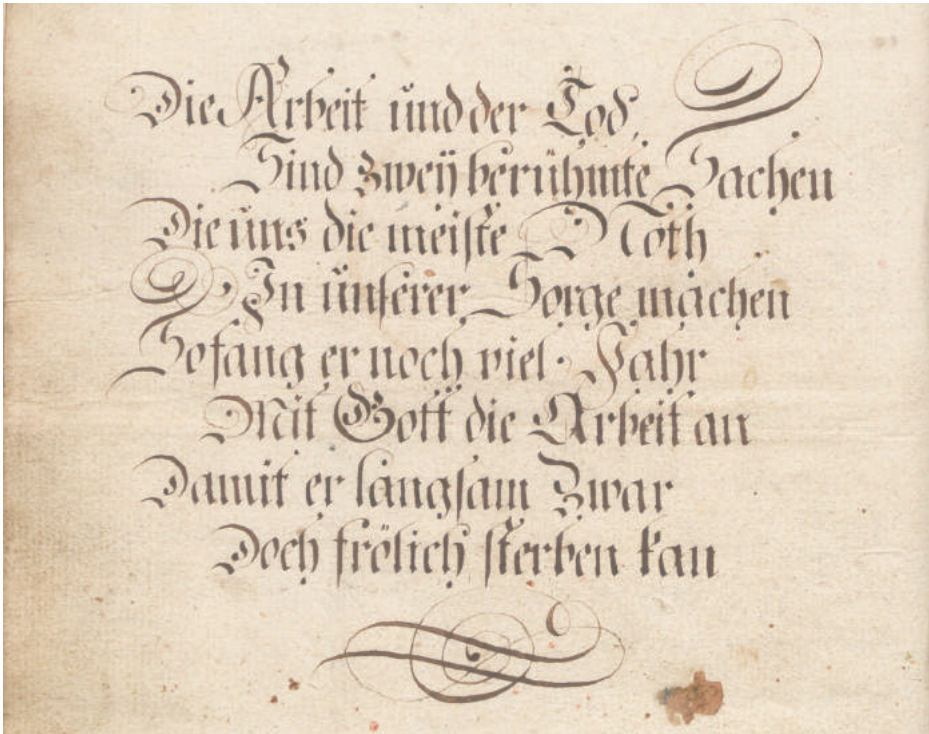 Die Arbeit und der Tod,
Sind zweÿ berühmte Sachen
Die uns die meiste Noth
In unserer Sorge machen
So fang er noch viel Jahr
Mit Gott die Arbeit an
Damit er langsam Zwar
Doch frölich sterben kan